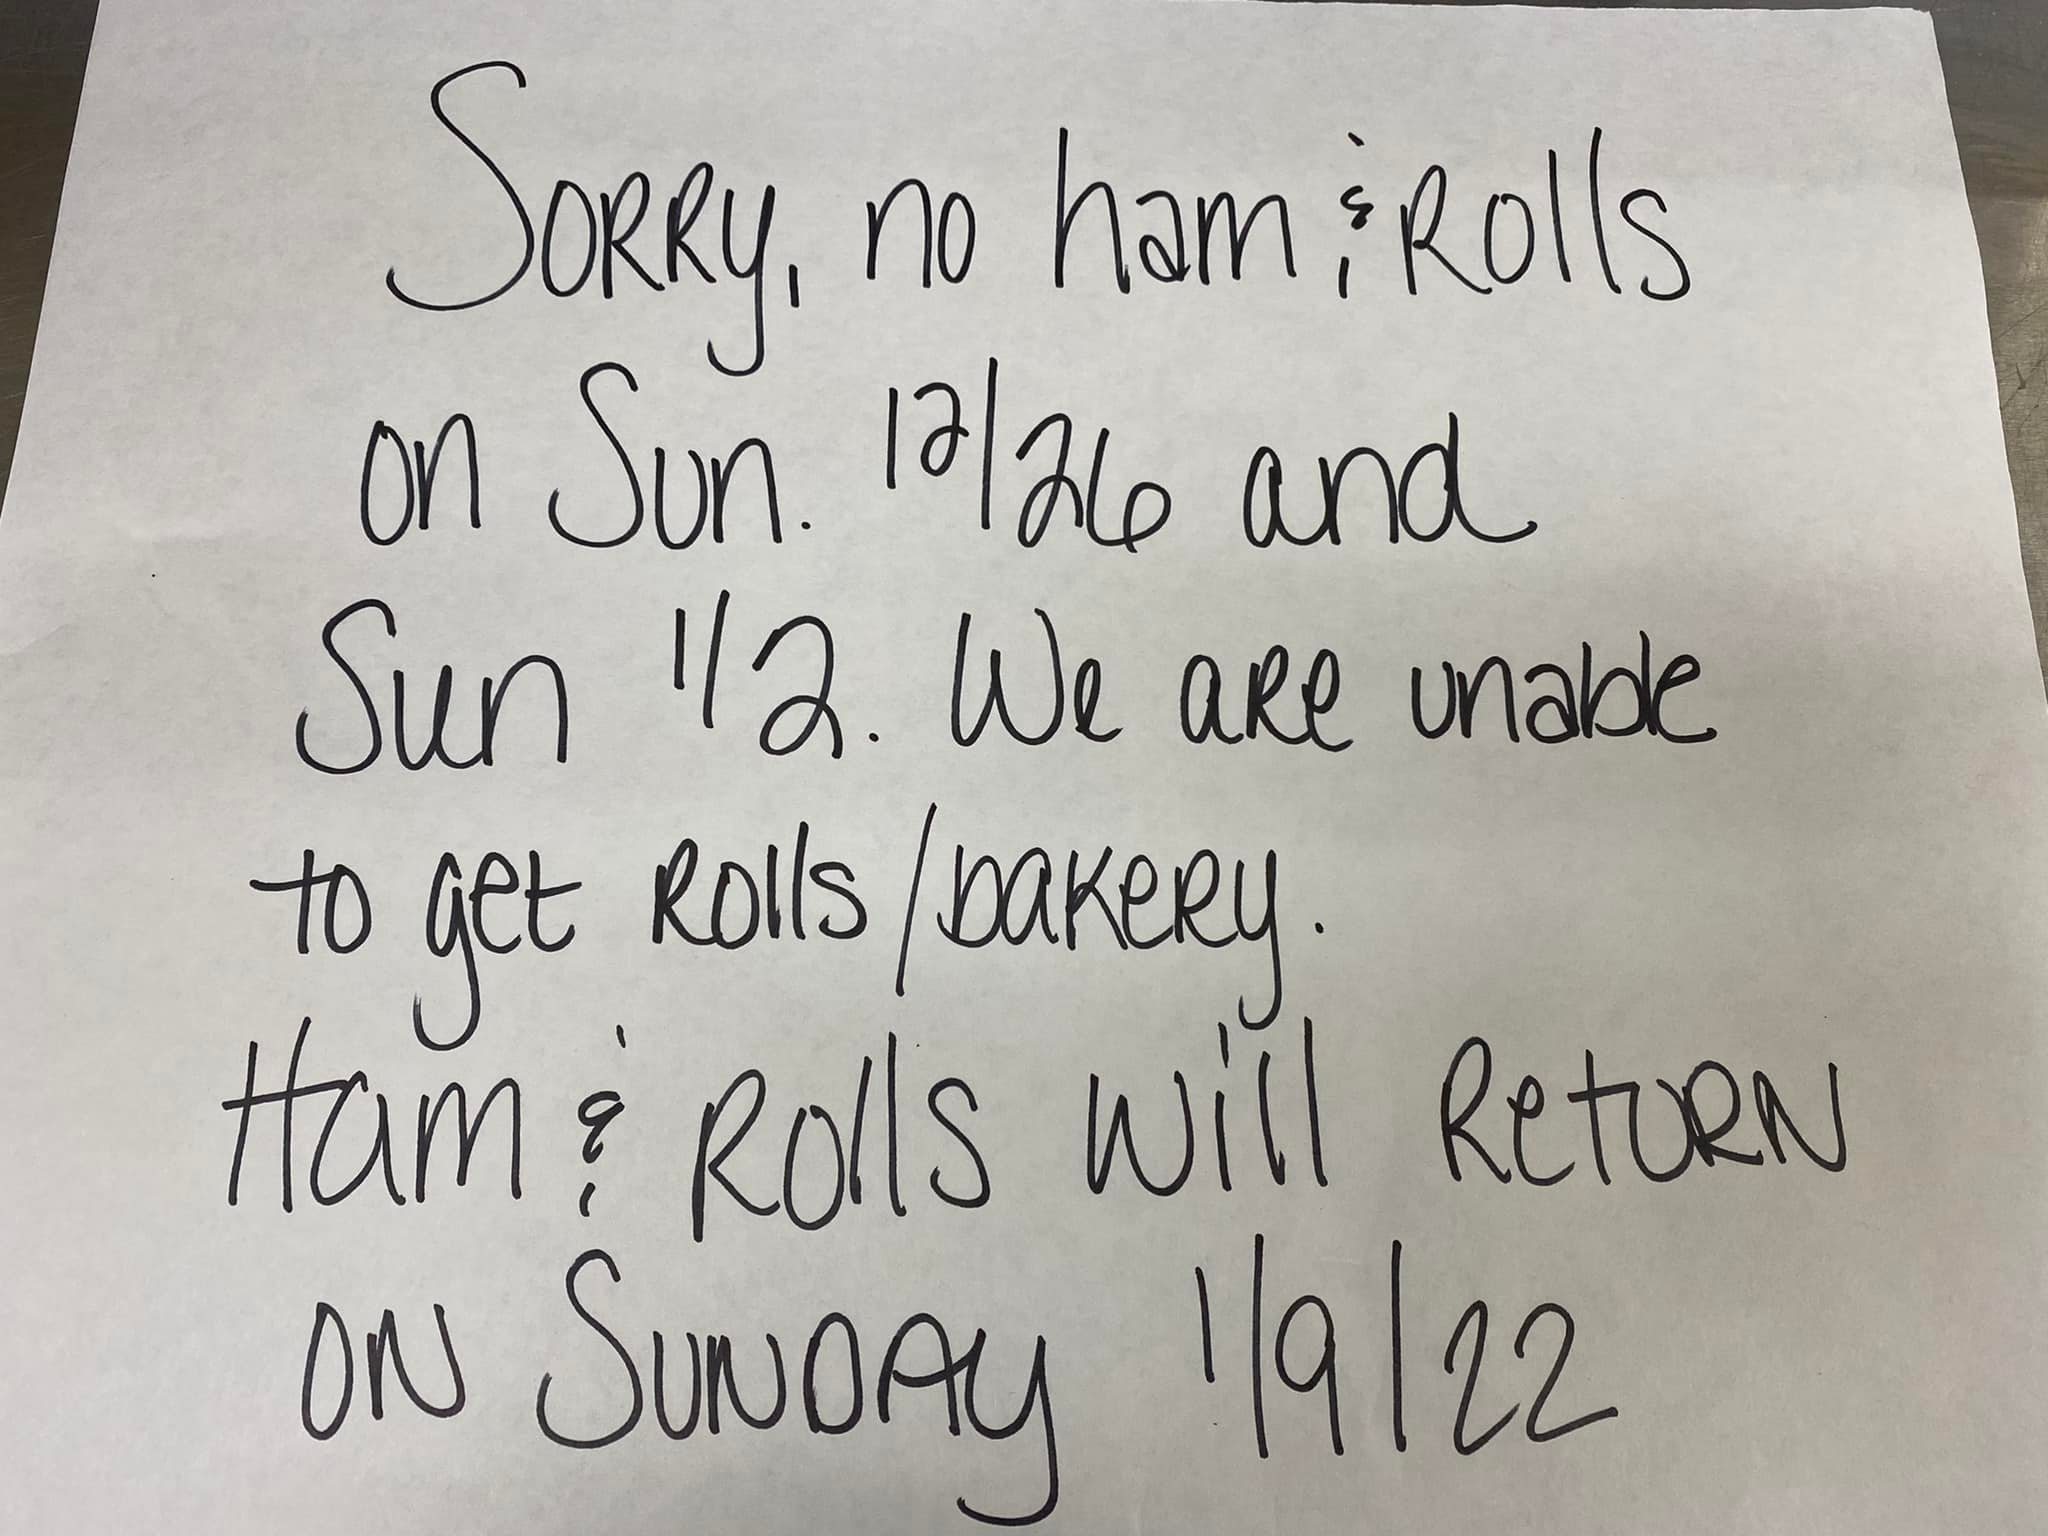 Sorry, no ham & Rolls
on Sun. 12/26 and
Sun 1/2. We are unable
to get Rolls/bakery.
Ham & Rolls will Return
on Sunday 1/9/22